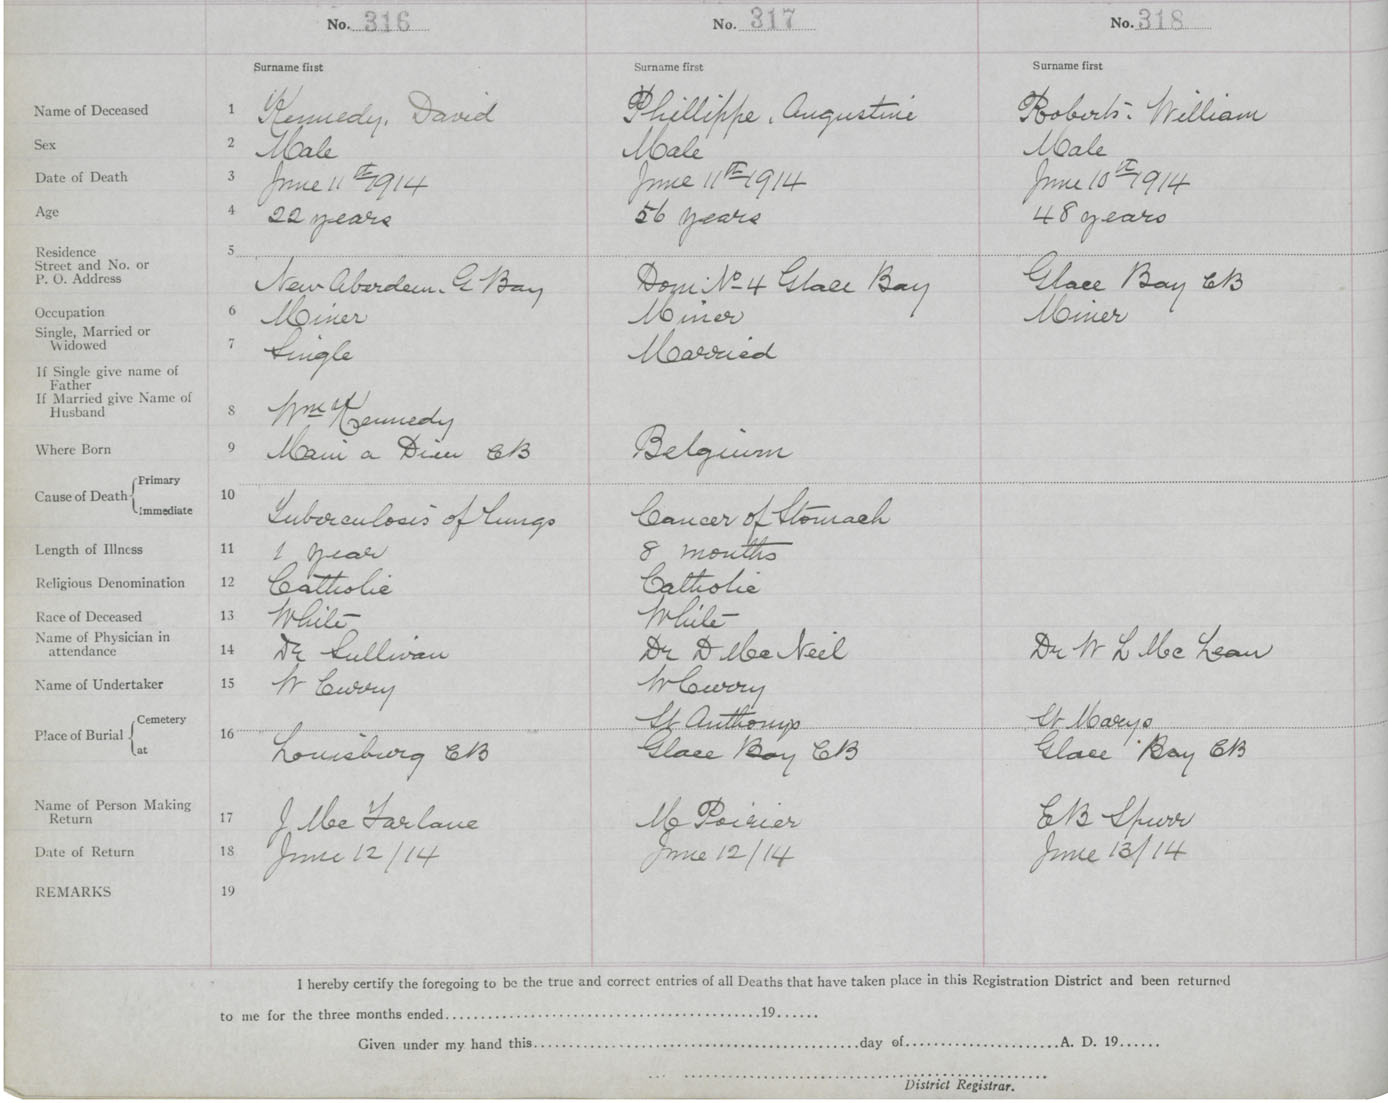 No. 316 No. 317 No. 318
Surname first Surname first Surname first
Name of Deceased 1 Kennedy, David Phillippe, Augustine Roberts. William
Sex 2 Male Male Male
Date of Death 3 June 11th 1914 June 11th 1914 June 10th 1914
Age 4 22 years 56 years 48 years
Residence 5
Street and No. or
P. O. Address New Aberdeen. G Bay Dom No 4 Glace Bay Glace Bay CB
Occupation 6 Miner Miner Miner
Single, Married or
Widowed 7 Single Married
If Single give name of
Father
If Married give Name of
Husband 8 Wm Kennedy
Where Born 9 Main a Dieu CB Belgium
Cause of Death { Primary 10
Immediate Tuberculosis of Lungs Cancer of Stomach
Length of Illness 11 1 year 8 months
Religious Denomination 12 Catholic Catholic
Race of Deceased 13 White White
Name of Physician in
attendance 14 Dr Sullivan Dr D McNeil Dr W L McLean
Name of Undertaker 15 W Curry W Curry
Place of Burial { Cemetery 16 St Anthonys St Marys
at Louisburg CB Glace Bay CB Glace Bay CB
Name of Person Making
Return 17 J McFarlane M Poirier CB Spurr
Date of Return 18 June 12/14 June 12/14 June 13/14
REMARKS 19
I hereby certify the foregoing to be the true and correct entries of all Deaths that have taken place in this Registration District and been returned
to me for the three months ended 19
Given under my hand this day of A. D. 19
District Registrar.